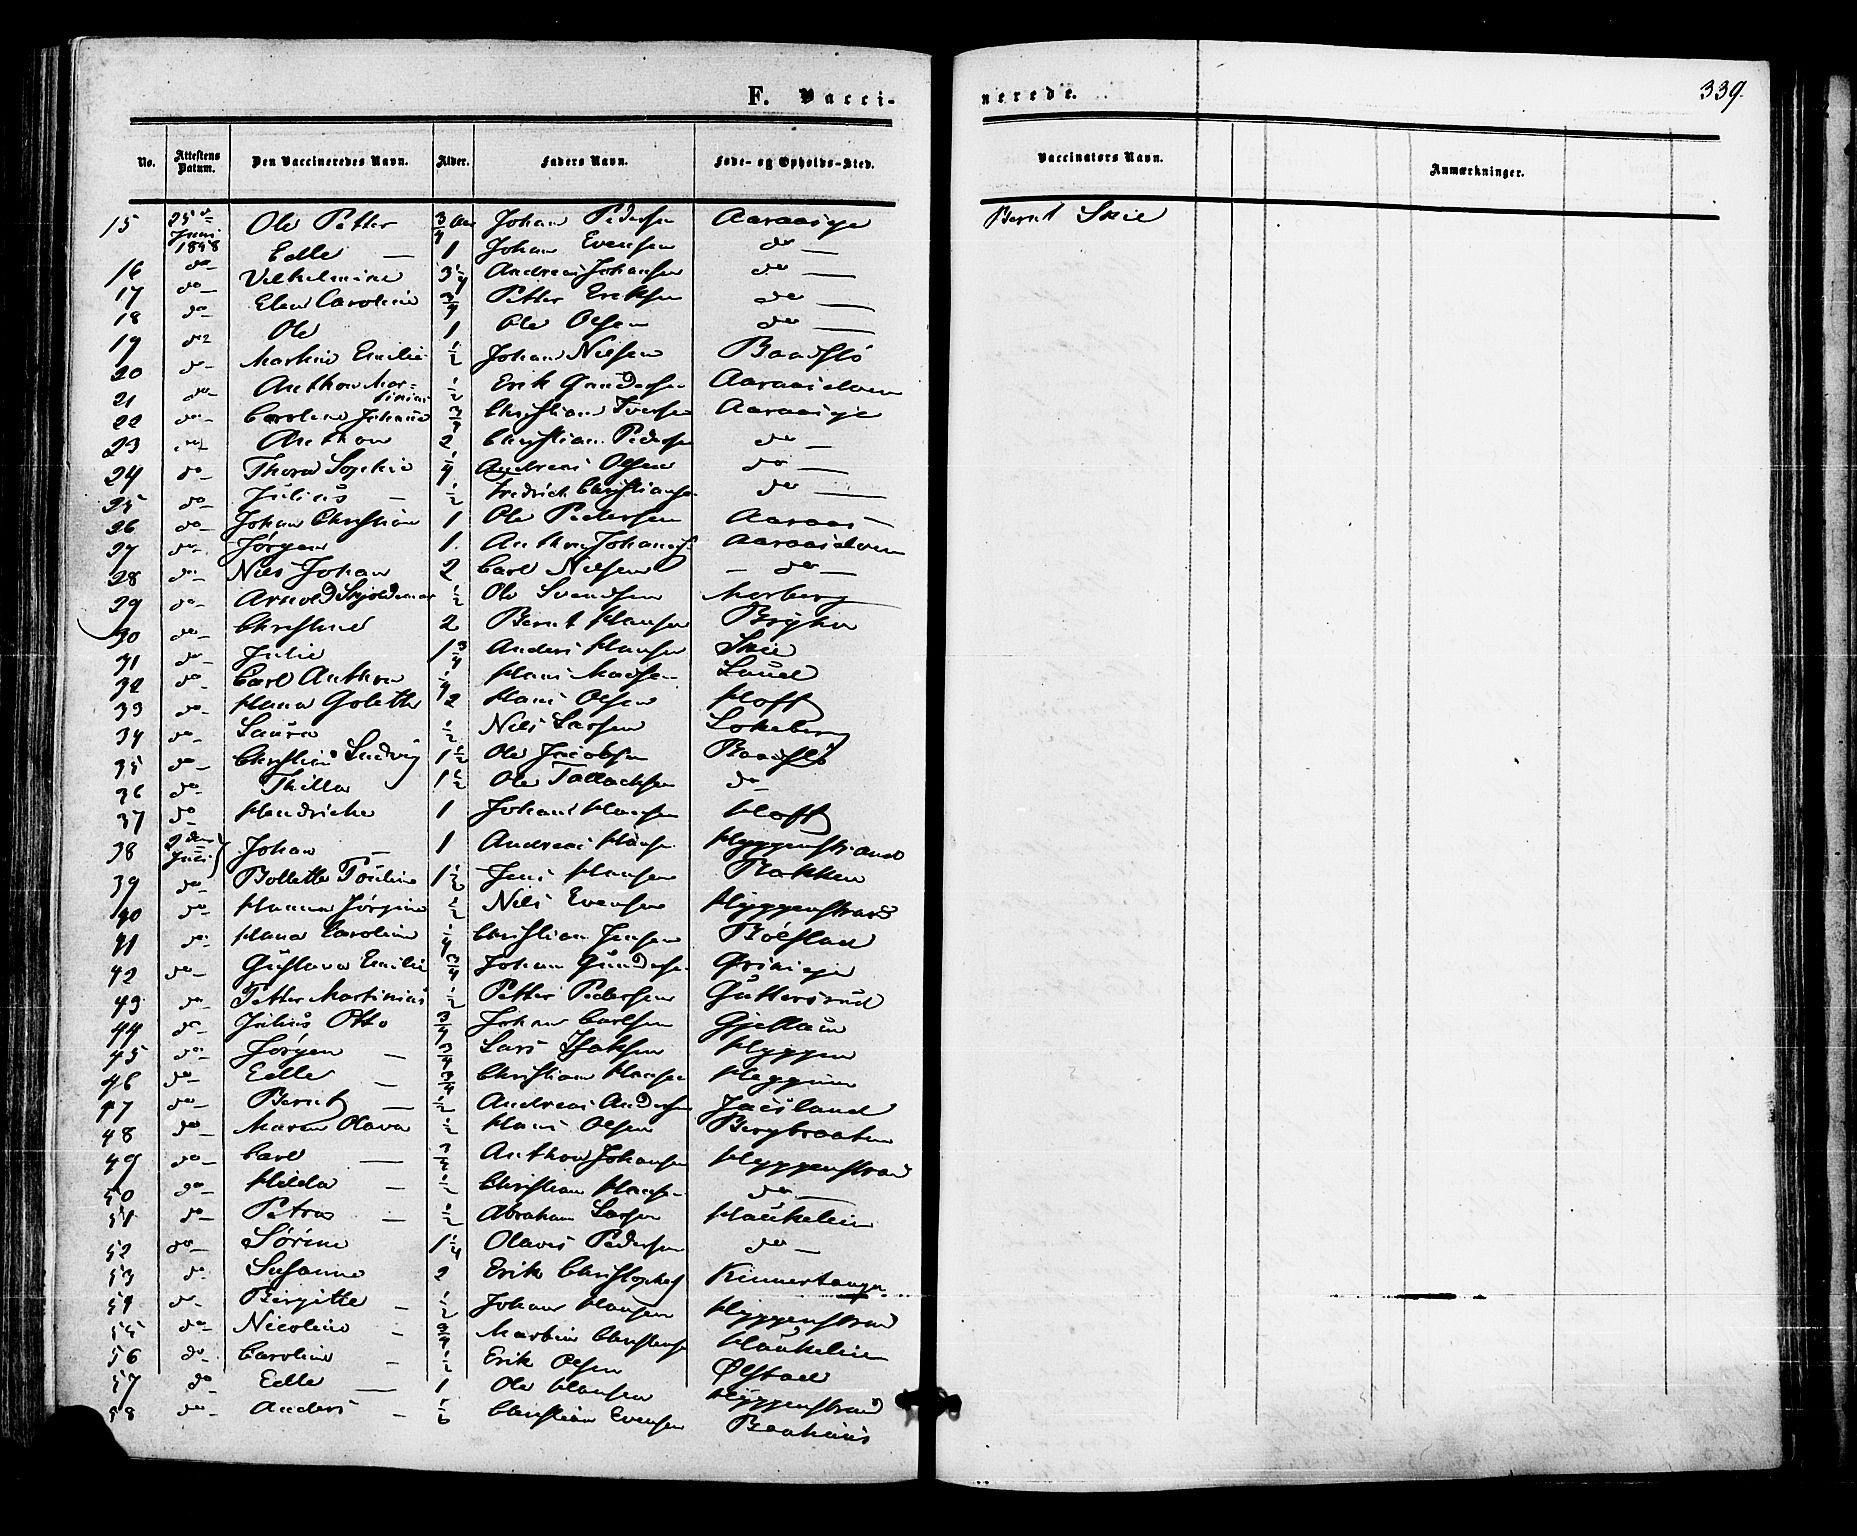 F. Vacci-
nerede.
339.
No. Attestens Datum. Den Vaccineredes Navn. Alder. Faders Navn. Føde- og Opholds-Sted. Vaccinators Navn. Anmærkninger.
15 25de Juni 1858 Ole Petter 3/4 Aar Johan Pedersen Aaraasige Bernt Skie
Edle — 1 Johan Evensen do —
16 do Vilhelmine 3 1/4 Andreas Johansen do —
17 do Elen Caroline 3/4 Petter Eriksen do —
18 do Ole 1 Ole Olsen do —
19 do Martine Emilie 1/2 Johan Nielsen Baadslö
20 do Anthon Mar- tinius 1/2 Erik Gundersen Aaraaselven
21 do Caroline Johanne 3/4 Christian Iversen Aaraasige
22 do Anthon 2 Christian Pedersen do —
23 do Thora Sophie 1/4 Andreas Olsen do —
24 do Julius — 1/2 Fredrick Christiansen do —
25 do Johan Christian 1 Ole Pedersen Aaraas —
26 do Jörgen 1. Anthon Johannes Aaraaselven
27 do Nils Johan 2 Carl Nielsen — do —
28 do Arnold Skjoldemar 1/2 Ole Svendsen Morberg
29 do Christine 2 Bernt Hansen
30 do Julie 1 3/4 Anders Hansen Skie
31 do Carl Anthon 1/4 Hans Madsen
32 do Hana Golette 2 Hans Olsen Hoff
33 do Laura 1/2 Nils Larsen Lokeberg
34 do Christian Ludvig 1 1/2 Ole Jacobsen Baadslö
35 do Thilla 1 1/2 Ole Tollachsen do —
36 do Hendricke 1 Johans Hansen Hoff
37 do
38 2den Juli Johan — 1 Andreas Hansen Hyggenstrand
39 do Bollette Pouline 1 1/2 Jens Hansen Bakken
40 do Hanna Jörgine 1/2 Nils Evensen Hyggenstrand
41 do Hana Caroline 1/4 Christian Jensen Bölstad
42 do Gustava Emilie 3/4 Johan Gundersen
43 do Petter Martinius 1/2 Petter Pedersen Guttersrud
44 do Julius Otto 3/4 Johan Carlsen Gjellum
45 do Jörgen — 3/4 Lars Isaksen Hyggen
46 do Edle — 3/4 Christian Hansen Heggum
47 do Bernt — 1/2 Andreas Andersen
48 do Maren Olava 1/2 Hans Olsen Bergbraaten
49 do Carl — 3/4 Anthon Johansen Hyggenstrand
50 do Hilda — 1/2 Christian Hansen do —
51 do Petra — 1/2 Abraham Larsen Haukelien
52 do Sörine 1 1/4 Olaves Pedersen do —
53 do Susanne 2 Erik Christophers Kinnertangen
54 do Birgitte — 1/2 Johans Hansen Hyggenstrand
55 do Nicoline — 3/4 Martin Christensen Haukelien
56 do Caroline — 1/2 Erik Olsen Ølstad
57 do Edle — 1 Ole Hansen Hyggenstrand
58 do Anders — Christian Evensen Baahuus